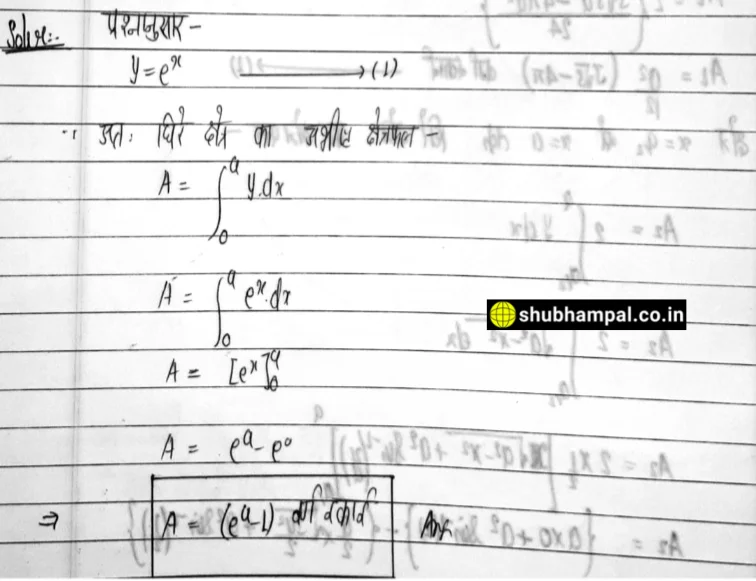 Solve:- प्रश्नानुसार-
y = e^x ⟶ (1)
∵ अतः घिरे क्षेत्र का अभीष्ट क्षेत्रफल -
A = ∫₀^a y.dx
A = ∫₀^a e^x.dx
shubhampal.co.in
A = [e^x]₀^a
A = e^a - e^0
⇒ A = (e^a-1) वर्ग इकाई Ans